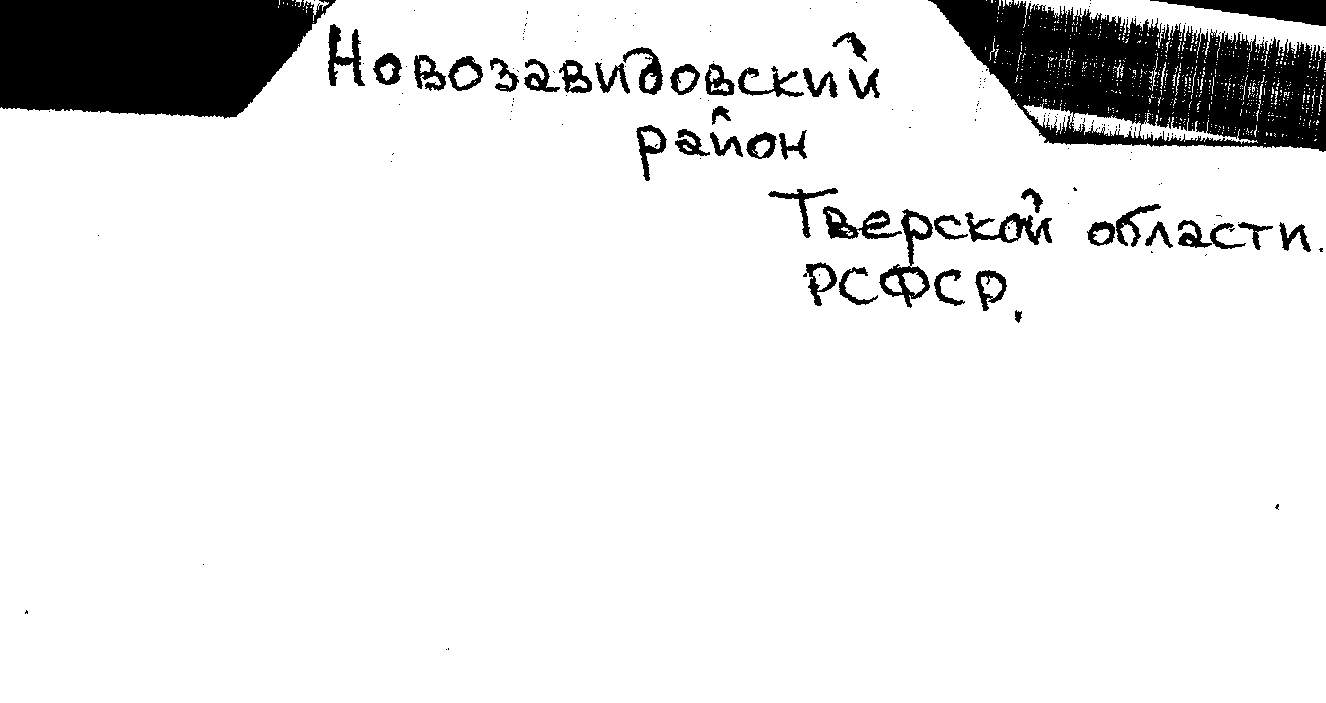 Новозавидовский
район
Тверской области.
РСФСР.